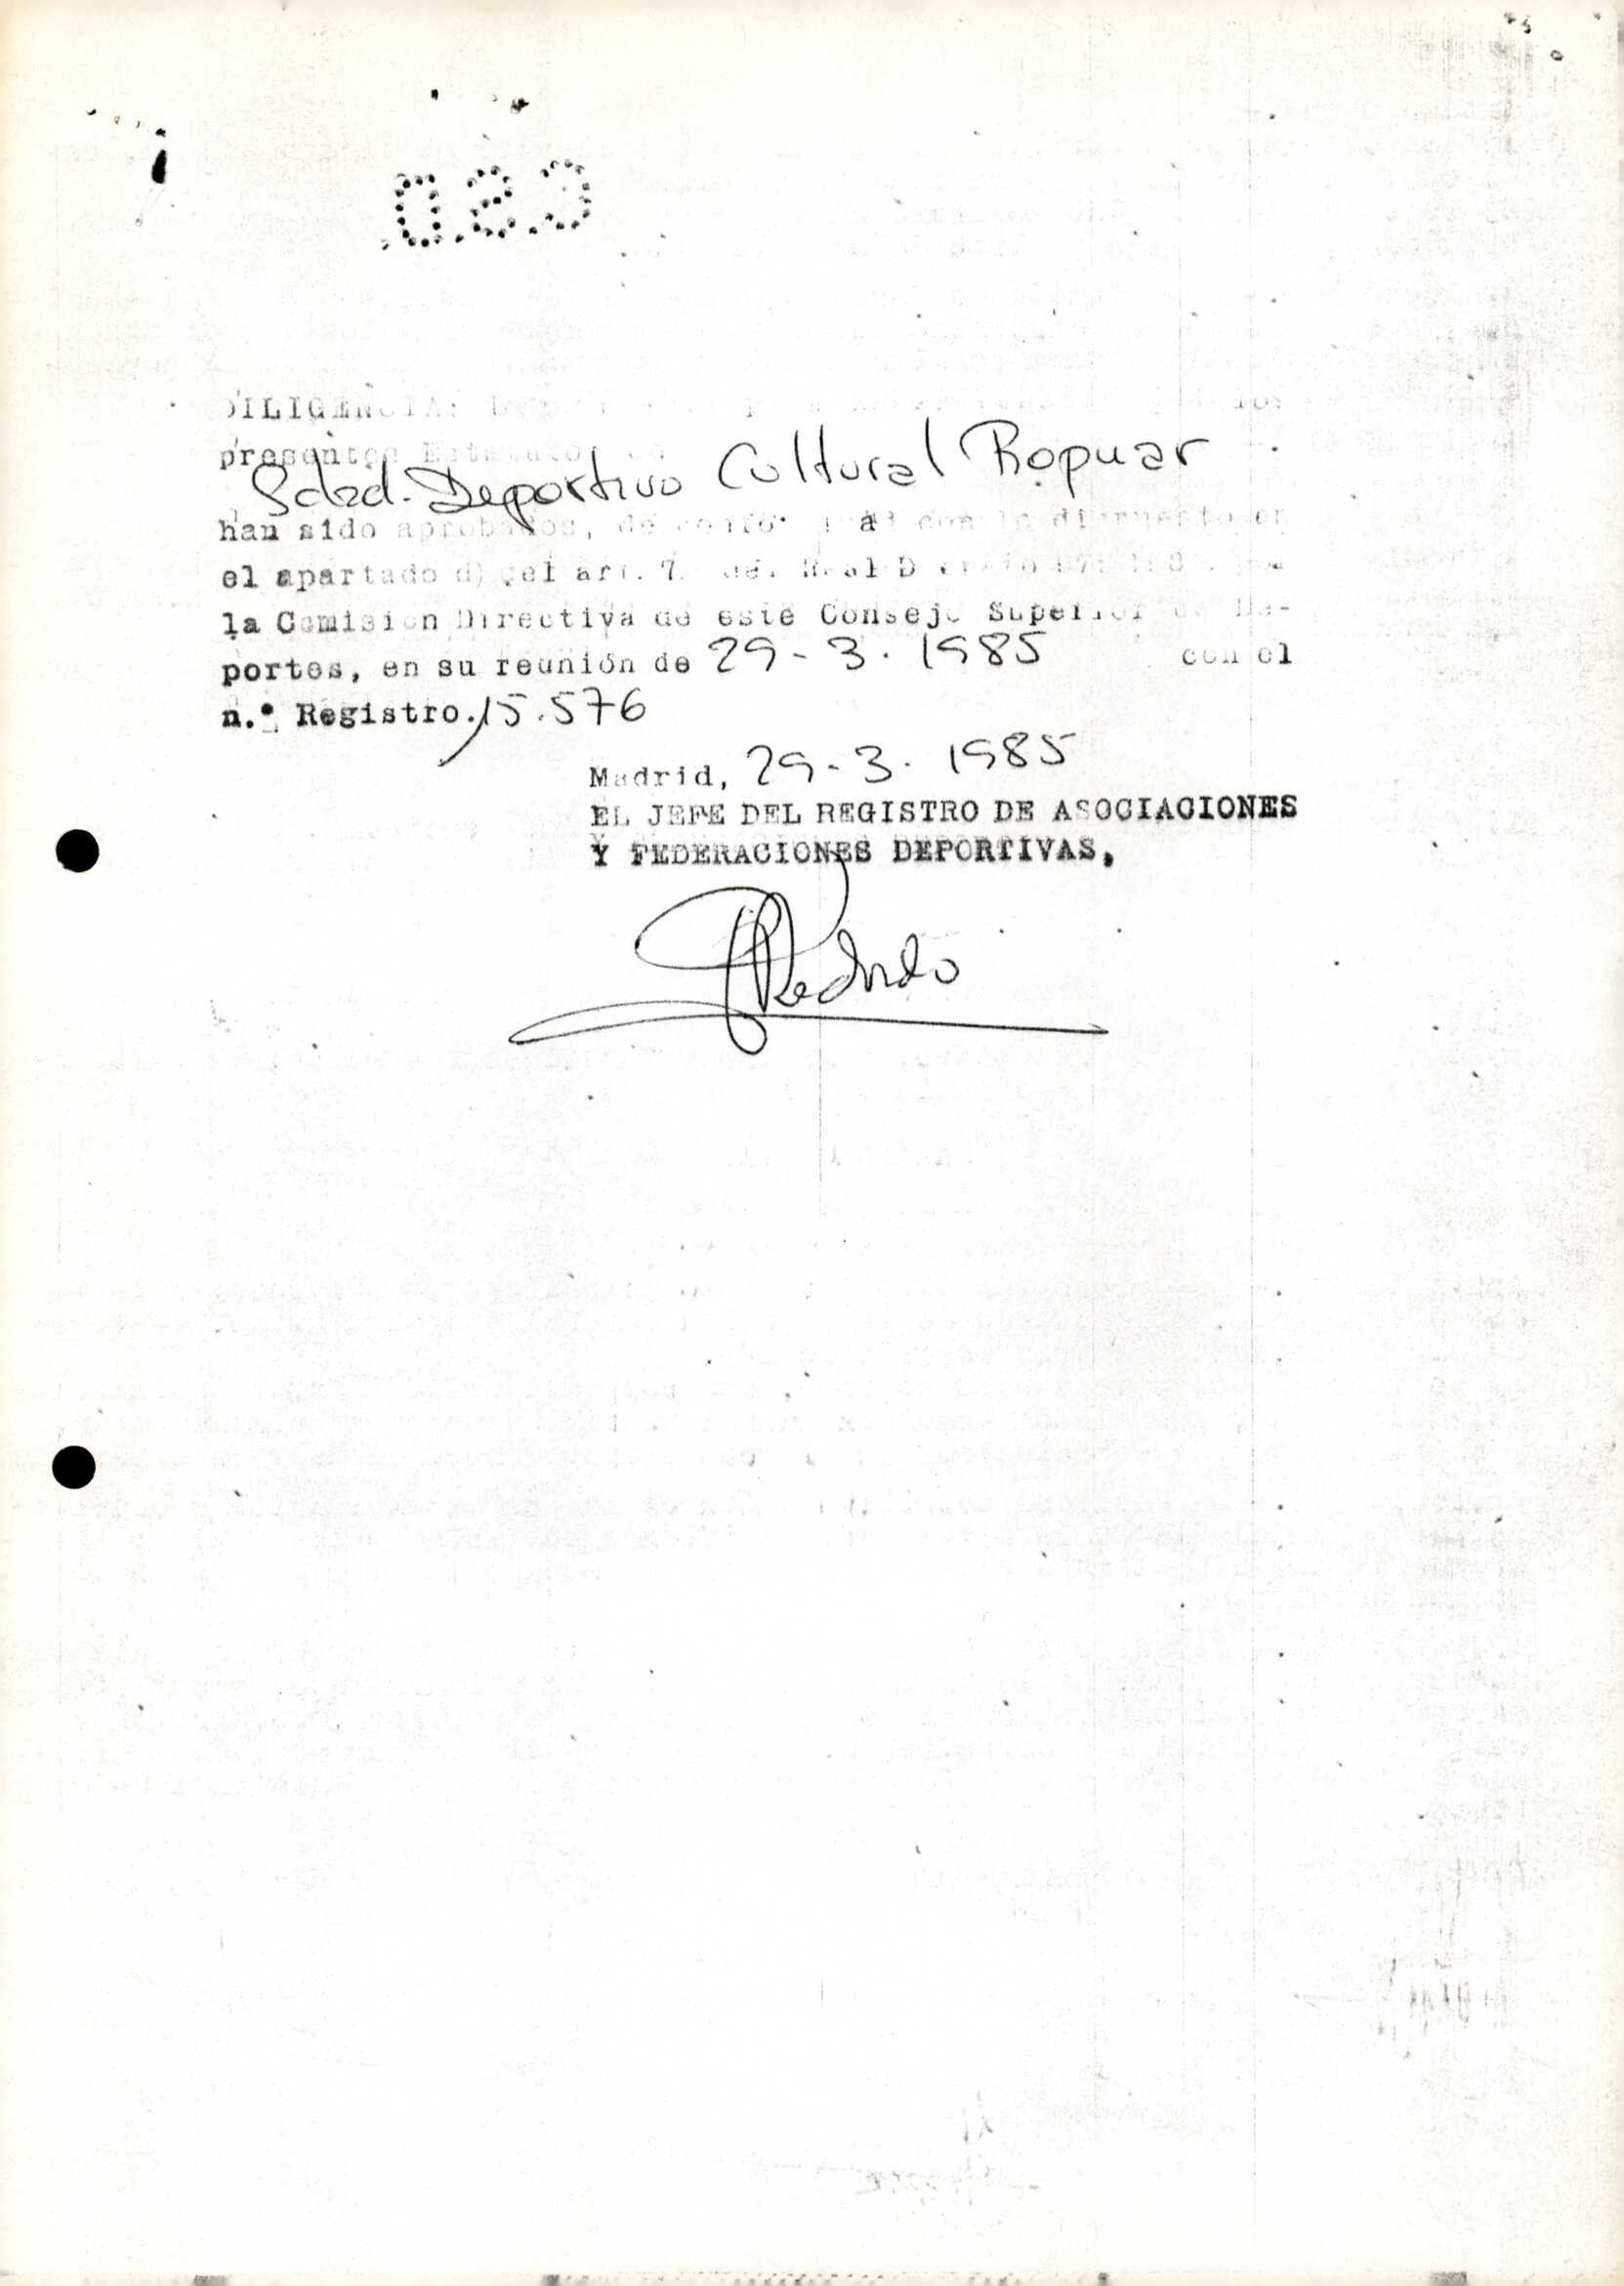 C.S.D.
DILIGENCIA:
presentes Estatutos
Sdad. Deportivo Cultural Ropuar
han sido aprobados, de con lo dispuesto en
el apartado d) del art. 7. del Real
la Comisión Directiva de este Consejo Superior de De-
portes, en su reunión de 29-3.1985 con el
n.º Registro. 15.576
Madrid, 29-3.1985
EL JEFE DEL REGISTRO DE ASOCIACIONES
Y FEDERACIONES DEPORTIVAS,